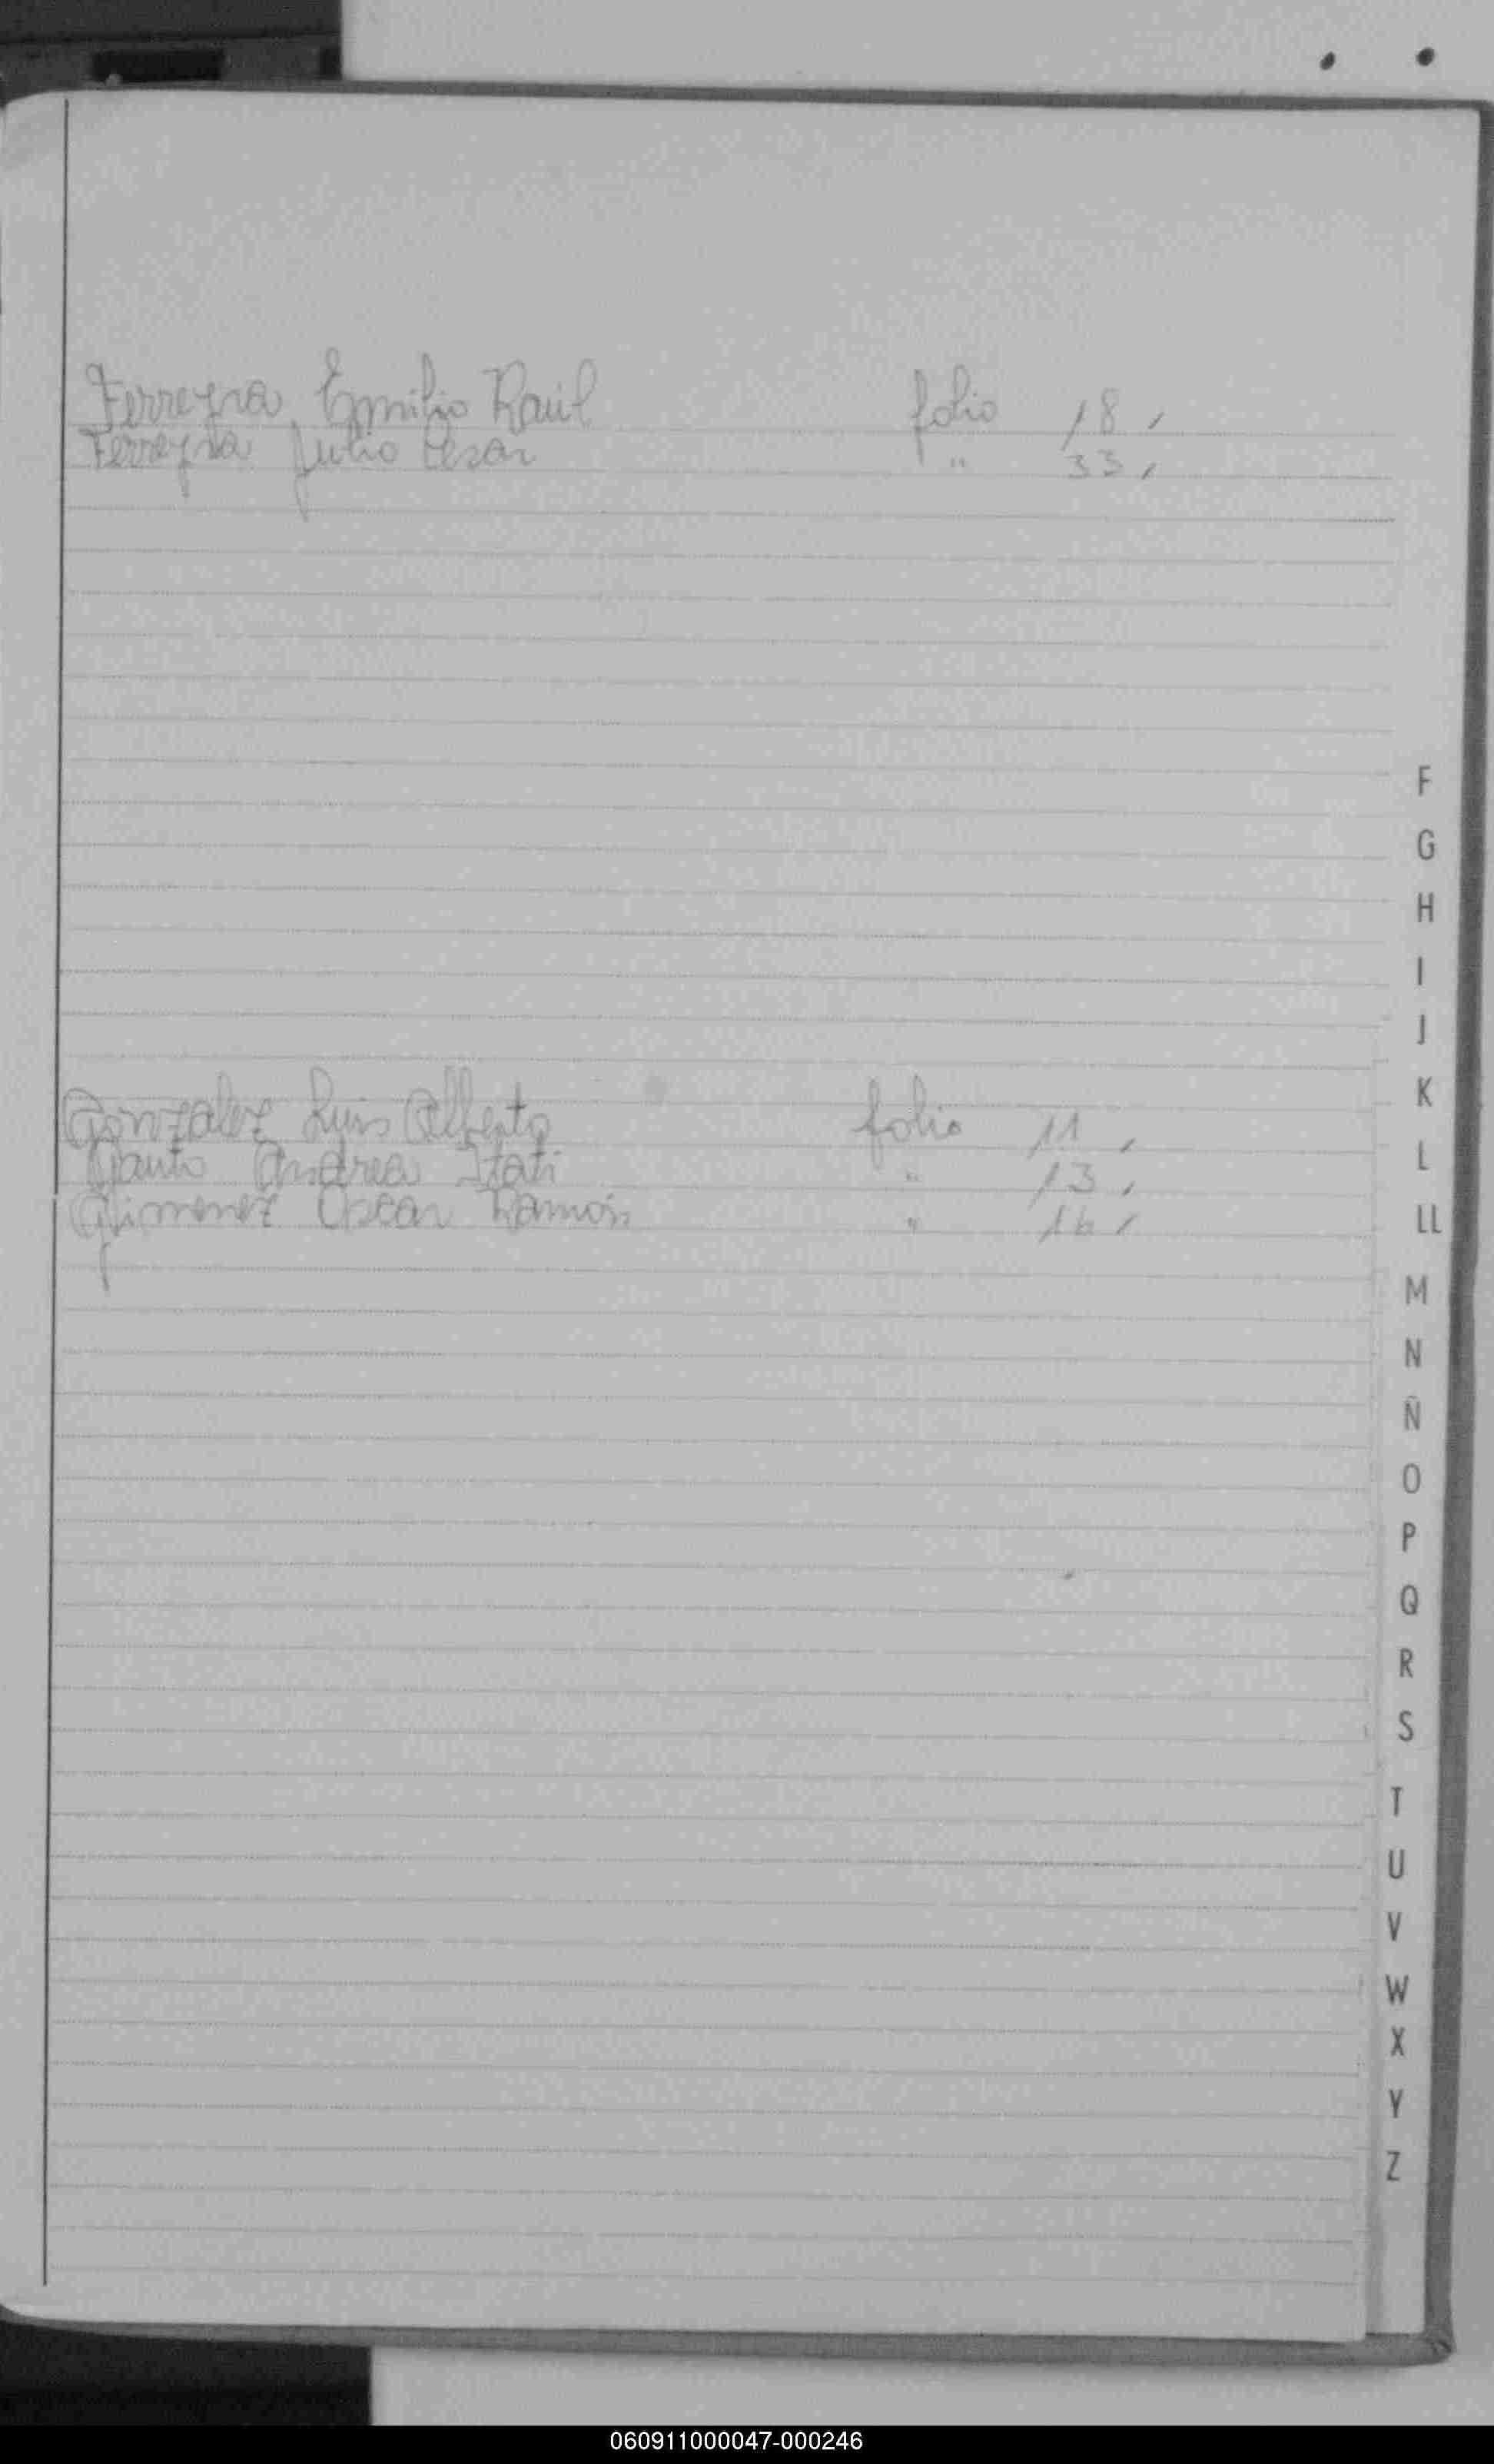 Ferreyra, Emilio Raúl folio 18,
Ferreyra Julio Cesar " 33,
Gonzalez Luis Alberto folio 11,
Gauto Andrea Itati " 13,
Gimenez Oscar Ramón " 16,
F
G
H
I
J
K
L
LL
M
N
Ñ
O
P
Q
R
S
T
U
V
W
X
Y
Z
060911000047-000246